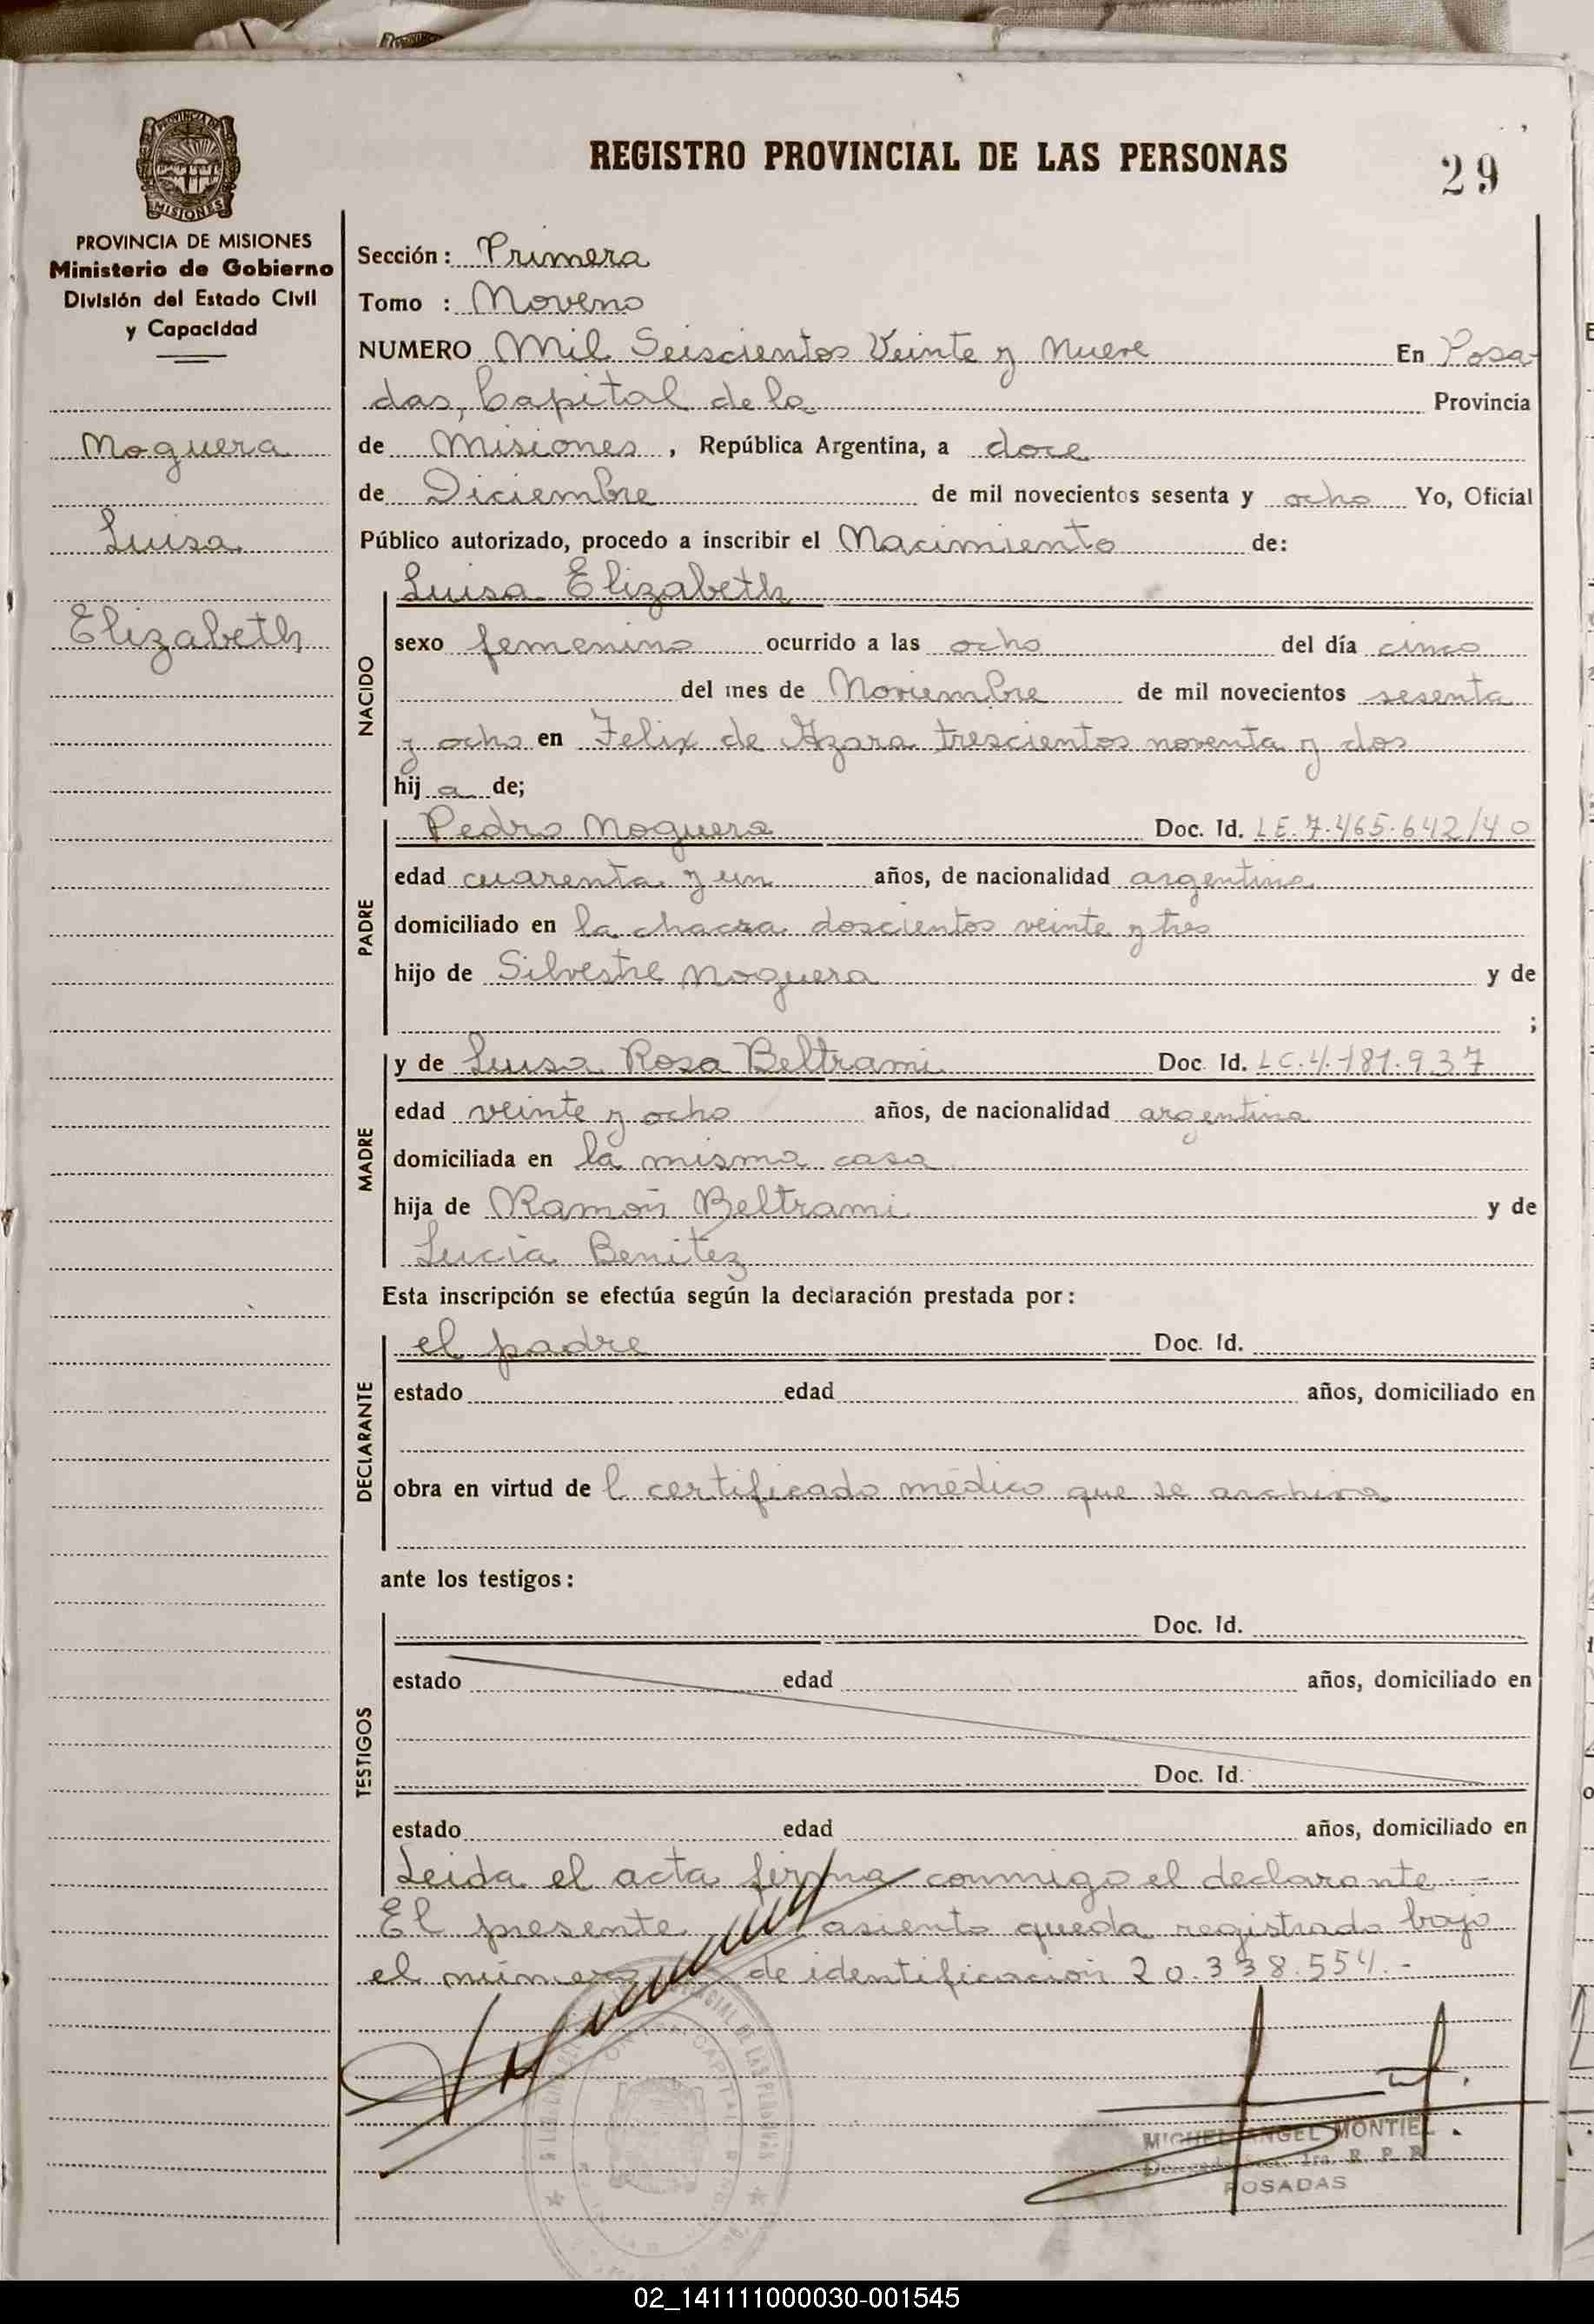 REGISTRO PROVINCIAL DE LAS PERSONAS
29
PROVINCIA DE
MISIONES
PROVINCIA DE MISIONES
Ministerio de Gobierno
División del Estado Civil
y Capacidad
Noguera
Luisa
Elizabeth
Sección: Primera
Tomo : Noveno
NUMERO Mil Seiscientos Veinte y Nueve En Posa-
das, Capital de la Provincia
de Misiones, República Argentina, a doce
de Diciembre de mil novecientos sesenta y ocho Yo, Oficial
Público autorizado, procedo a inscribir el Nacimiento de:
NACIDO
Luisa Elizabeth
sexo femenino ocurrido a las ocho del día cinco
del mes de Noviembre de mil novecientos sesenta
y ocho en Felix de Azara trescientos noventa y dos
hij a de;
PADRE
Pedro Noguera Doc. Id. LE. 7.465.642/40
edad cuarenta y un años, de nacionalidad argentina
domiciliado en la chacra doscientos veinte y tres
hijo de Silvestre Noguera y de
;
MADRE
y de Luisa Rosa Beltrami Doc Id. LC.4.181.937
edad veinte y ocho años, de nacionalidad argentina
domiciliada en la misma casa
hija de Ramón Beltrami y de
Lucia Benitez
Esta inscripción se efectúa según la declaración prestada por:
DECLARANTE
el padre Doc. Id.
estado edad años, domiciliado en
obra en virtud de l certificado médico que se archiva
ante los testigos:
TESTIGOS
Doc. Id.
estado edad años, domiciliado en
Doc. Id.
estado edad años, domiciliado en
Leida el acta firma conmigo el declarante.-
El presente asiento queda registrado bajo
el número de identificación 20.338.554.-
MIGUEL ANGEL MONTIEL
POSADAS
02_141111000030-001545